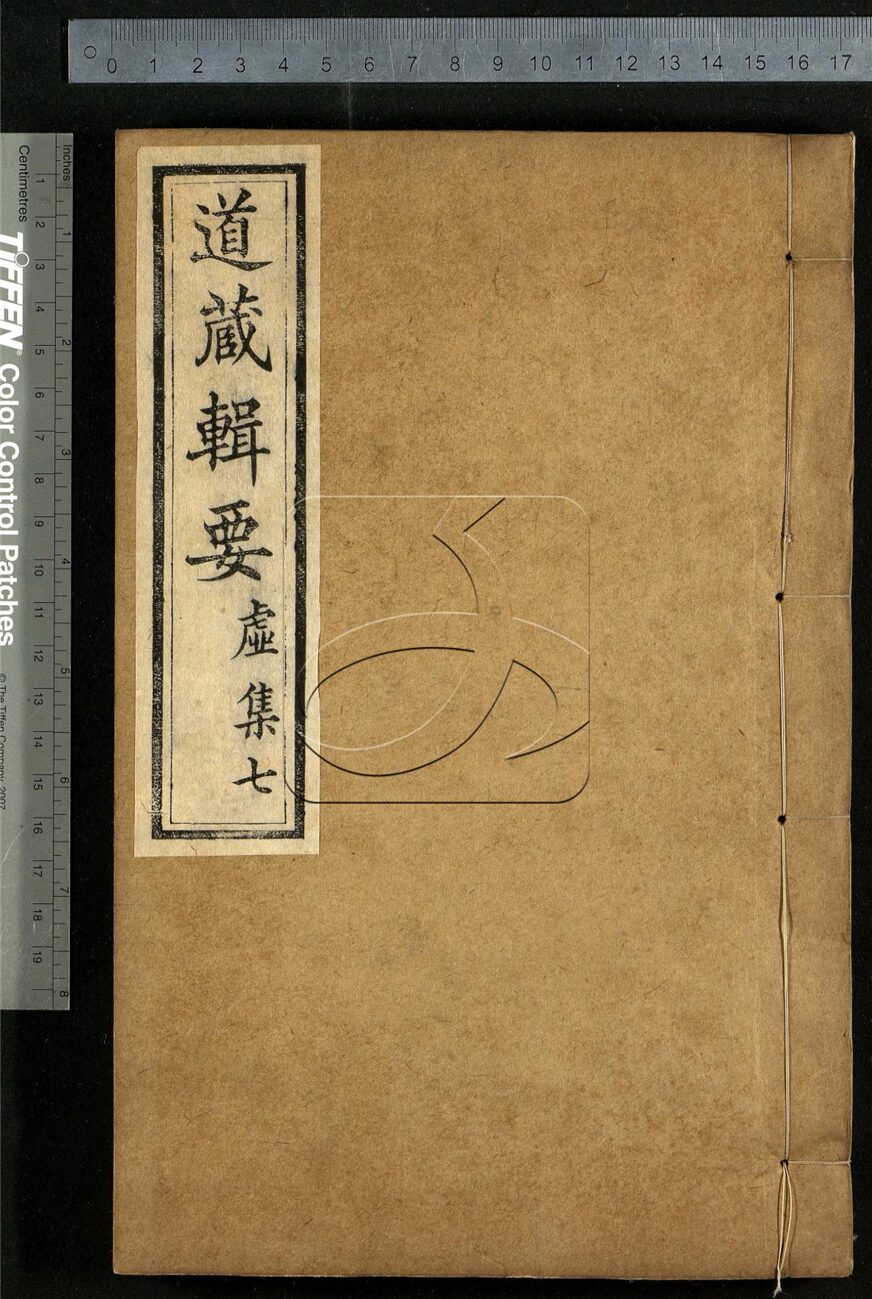 道藏輯要
虛集七
0 1 2 3 4 5 6 7 8 9 10 11 12 13 14 15 16 17
Inches 1 2 3 4 5 6 7 8
Centimetres 1 2 3 4 5 6 7 8 9 10 11 12 13 14 15 16 17 18 19
TIFFEN® Color Control Patches © The Tiffen Company, 2007